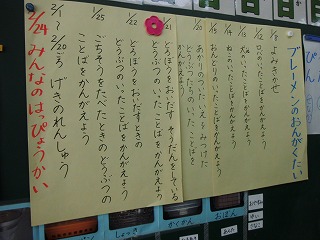 ブレーメンのおんがくたい
1/8 よみきかせ
1/12 ロバのいったことばをかんがえよう
1/13
1/14 ねこのいったことばをかんがえよう
1/15 おんどりのいったことばをかんがえよう
あかりのついたいえをみつけた
どうぶつたちのいったことば
かんがえよう
1/21 どろぼうをおいだす そうだんをしている
どうぶつのいったことばをかんがえよう
1/22 どろぼうをおいだすときの
どうぶつのいったことばをかんがえよう
1/25 ごちそうをたべたときの どうぶつの
ことばをかんがえよう
2/1～2/20ごろ げきのれんしゅう
2/24 みんなのはっぴょうかい
しょっき
かくかん
おぼん